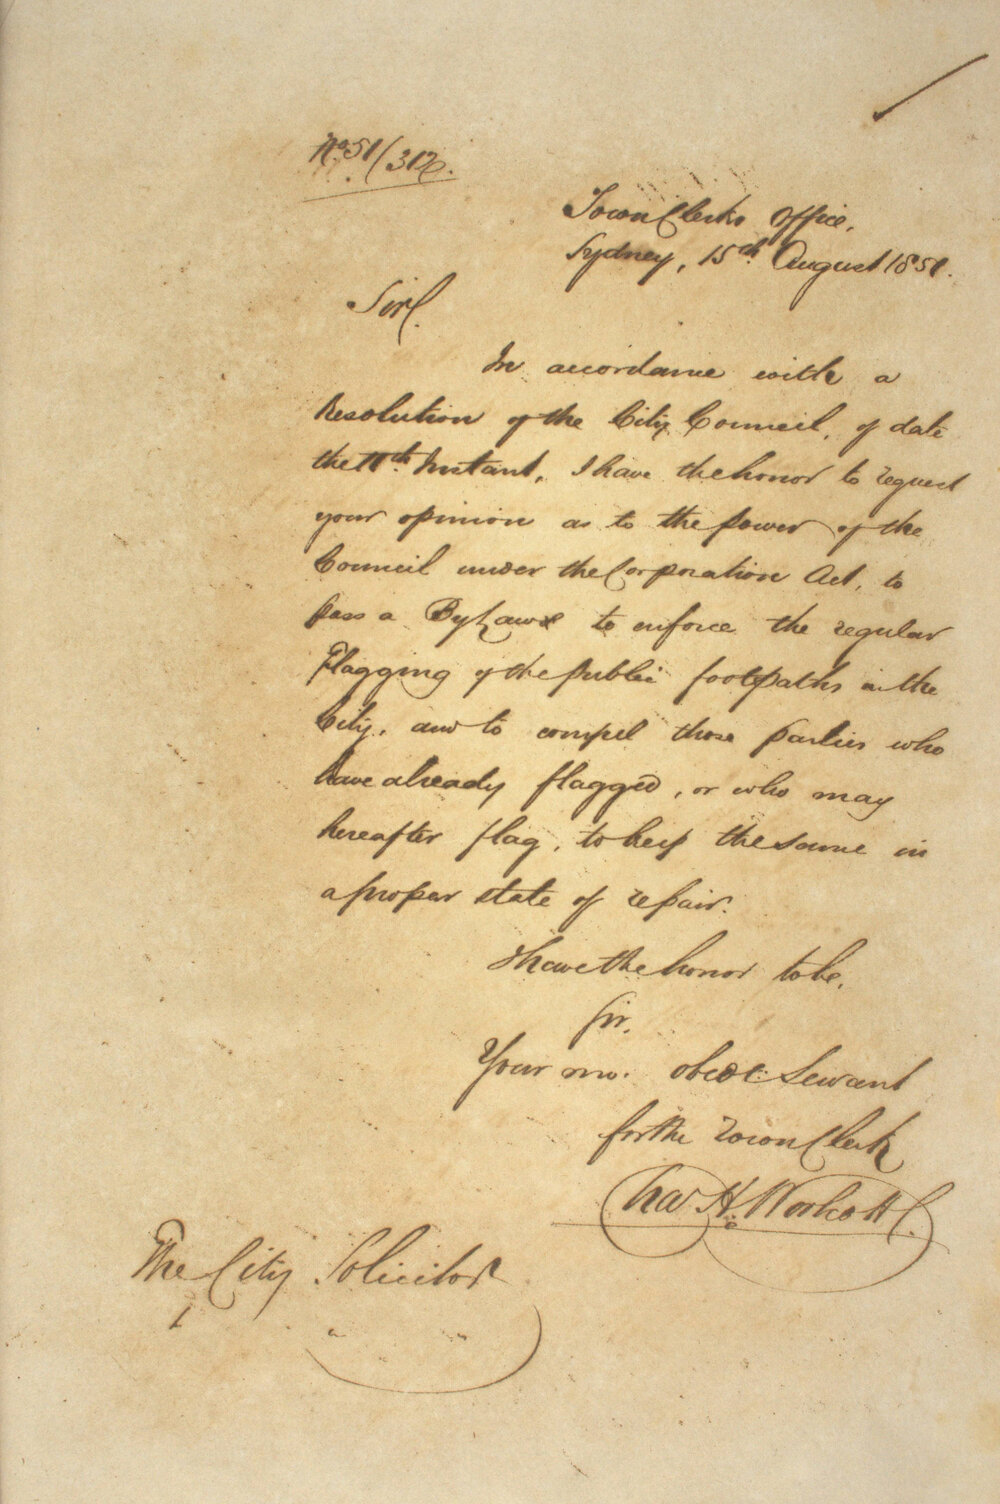 No. 51/312.
Town Clerks Office,
Sydney, 15th August 1851.
Sir,
In accordance with a
Resolution of the City Council, of date
the 11th Instant, I have the honor to request
your opinion as to the power of the
Council under the Corporation Act, to
pass a By Law to enforce the regular
Flagging of the public footpaths in the
City, and to compel those parties who
have already flagged, or who may
hereafter flag, to keep the same in
a proper state of repair.
I have the honor to be,
Sir,
Your mo. obedt. Servant
for the Town Clerk
Chas H. Woolcott
The City Solicitor